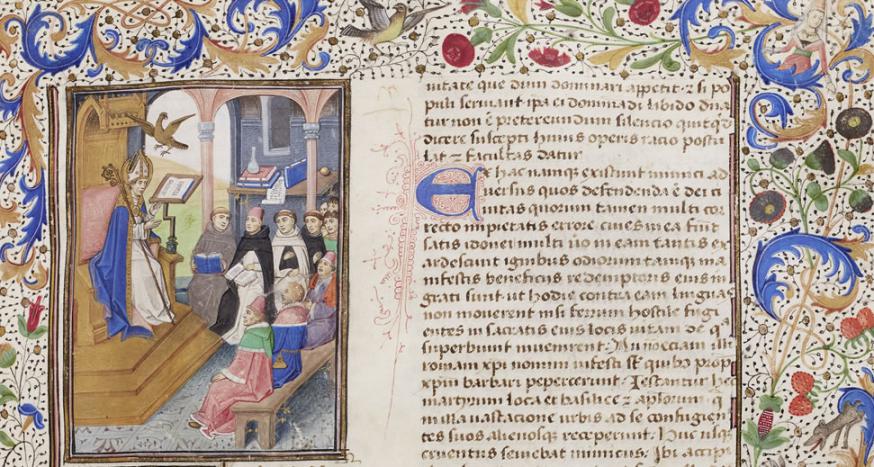 uitate que dum dominari appetit · ⁊ si po
puli seruiant ipa ei dominādi libido dīna
tur non ē pretereundum silencio quitq̄d
dicere suscepti huius operis racio postu
lat ⁊ facultas datur
Ex hac nanque existunt inimici ad
uersus quos defendenda ē dei ci
uitas quorum tamen multi cor
recto impietatis errore ciues in ea fiūt
satis idonei multi ūo in eam tantis ex
ardescunt ignibus odiorum tamq̄ ma
nifestis beneficiis redemptoris eius in
grati sunt ut hodie contra eam linguas
non mouerent nisi ferrum hostile fugi
entes in sacratis eius locis uitam de q̄
superbiunt inuenirent · An nō eciam illi
romani xp̄i nomini infesti st̄ quibꝰ prop̄
xp̄m barbari pepercerunt · Testantur hoc
martyrum loca et basilice aplorum q̄
in illa uastacione urbis ad se confugien
tes suos alienosq̄ receperunt · Huc usq̄
cruentus seuiebat inimicus · Ibi accipi